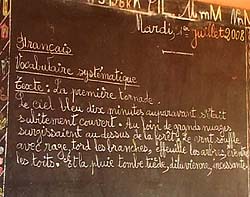 Mardi, 1er juillet 2008
Français
Vocabulaire systématique
Texte : La première tornade.
Le ciel bleu dix minutes auparavant s'était
subitement couvert. Au loin de grands nuages
surgissaient au dessus de la forêt. Le vent souffle
avec rage, tord les branches, effeuille les arbres, évente
les toits. Et la pluie tombe tiède, diluvienne, incessante.